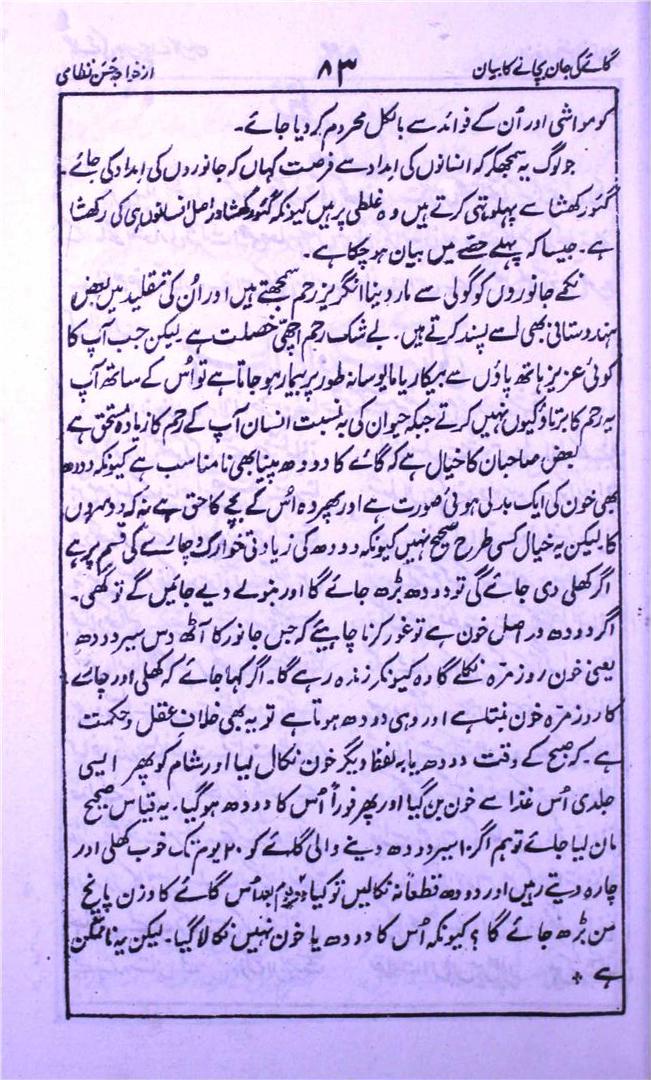 گائے کی جان بچانے کا بیان ۸۳ از خواجہ حسن نظامی
کو مواشی اور اُن کے فوائد سے بالکل محروم کر دیا جائے۔
جو لوگ یہ سمجھکر کہ انسانوں کی امداد سے فرصت کہاں کہ جانوروں کی امداد کی جائے۔
گئور کھشا سے پہلو تہی کرتے ہیں وہ غلطی پر ہیں کیونکہ گئور کھشا در اصل انسانوں ہی کی رکھشا
ہے۔ جیسا کہ پہلے حصے میں بیان ہو چکا ہے۔
نکمے جانوروں کو گولی سے مار دینا انگریز رحم سمجھتے ہیں اور اُن کی تقلید میں بعض
ہندوستانی بھی اسے پسند کرتے ہیں۔ بے شک رحم اچھی خصلت ہے لیکن جب آپ کا
کوئی عزیز ہاتھ پاؤں سے بیکار یا مایوسانہ طور پر بیمار ہو جاتا ہے تو اُس کے ساتھ آپ
یہ رحم کا برتاؤ کیوں نہیں کرتے جبکہ حیوان کی بہ نسبت انسان آپ کے رحم کا زیادہ مستحق ہے
بعض صاحبان کا خیال ہے کہ گائے کا دودھ پینا بھی نامناسب ہے کیونکہ دودھ
بھی خون کی ایک بدلی ہوئی صورت ہے اور پھر وہ اُس کے بچے کا حق ہے نہ کہ دوسروں
کا لیکن یہ خیال کسی طرح صحیح نہیں کیونکہ دودھ کی زیادتی خوارک و چارے کی قسم پر ہے
اگر کھلی دی جائے گی تو دودھ بڑھ جائے گا اور بنولے دیے جائیں گے تو گھی۔
اگر دودھ در اصل خون ہے تو غور کرنا چاہیئے کہ جس جانور کا آٹھ دس سیر دودھ
یعنی خون روز مرّہ نکلے گا وہ کیونکر زندہ رہے گا۔ اگر کہا جائے کہ کھلی اور چارے
کا روز مرّہ خون بنتا ہے اور وہی دودھ ہوتا ہے تو یہ بھی خلافِ عقل و حکمت
ہے۔ کہ صبح کے وقت دودھ یا بہ لفظ دیگر خون نکال لیا اور شام کو پھر ایسی
جلدی اُس غذا سے خون بن گیا اور پھر فوراً اُس کا دودھ ہو گیا۔ یہ قیاس صحیح
مان لیا جائے تو ہم اگر ۱۰ سیر دودھ دینے والی گائے کو ۲۰ یوم تک خوب کھلی اور
چارہ دیتے رہیں اور دودھ قطعاً نہ نکالیں تو کیا ۲۰ یوم بعد اُس گائے کا وزن پانچ
من بڑھ جائے گا؟ کیونکہ اُس کا دودھ یا خون نہیں نکالا گیا۔ لیکن یہ ناممکن
ہے ٭